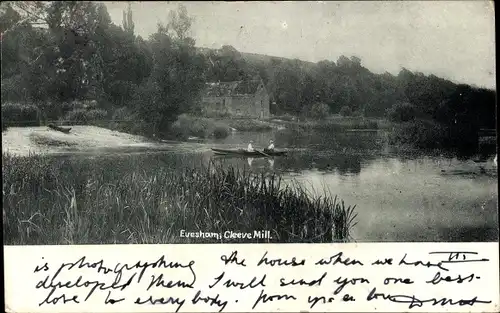 Evesham, Cleeve Mill.
is photographing the house when we have
developed them I will send you one best
love to every body from